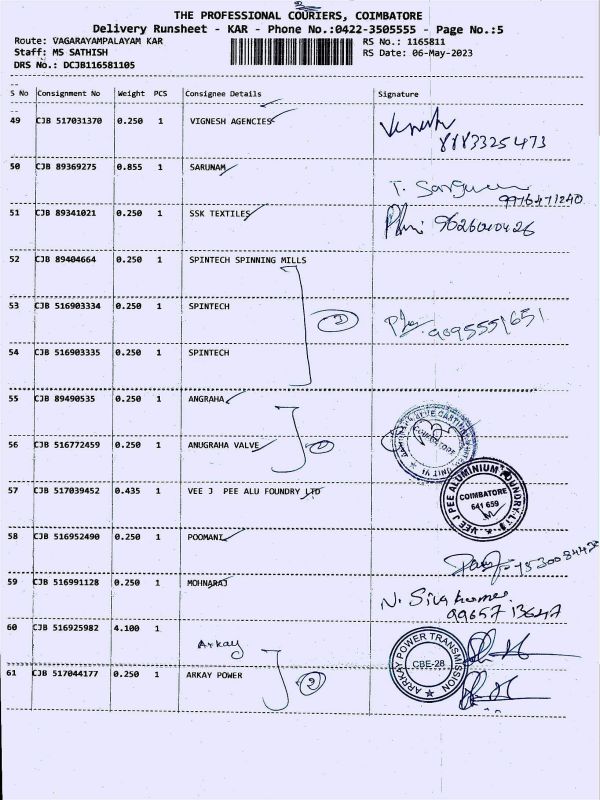 THE PROFESSIONAL COURIERS, COIMBATORE
Delivery Runsheet - KAR - Phone No.:0422-3505555 - Page No.:5
Route: VAGARAYAMPALAYAM KAR RS No.: 1165811
Staff: MS SATHISH RS Date: 06-May-2023
DRS No.: DCJB116581105
S No Consignment No Weight PCS Consignee Details Signature
49 CJB 517031370 0.250 1 VIGNESH AGENCIES Vignesh
8883325473
50 CJB 89369275 0.855 1 SARUNAM
9976471240
51 CJB 89341021 0.250 1 SSK TEXTILES 9626040426
52 CJB 89404664 0.250 1 SPINTECH SPINNING MILLS
53 CJB 516903334 0.250 1 SPINTECH 9095551651
54 CJB 516903335 0.250 1 SPINTECH
55 CJB 89490535 0.250 1 ANGRAHA
56 CJB 516772459 0.250 1 ANUGRAHA VALVE COIMBATORE UNIT VI
57 CJB 517039452 0.435 1 VEE J PEE ALU FOUNDRY LTD VEE J PEE ALUMINIUM FOUNDRY LTD COIMBATORE 641 659
58 CJB 516952490 0.250 1 POOMANI
59 CJB 516991128 0.250 1 MOHNARAJ N. Sivakumar
9965713647
60 CJB 516925982 4.100 1 Arkay
ARKAY POWER TRANSMISSION CBE-28
61 CJB 517044177 0.250 1 ARKAY POWER 2